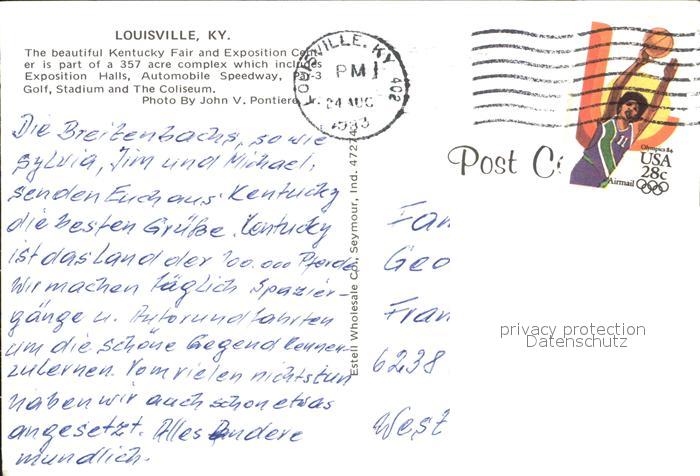 LOUISVILLE, KY.
The beautiful Kentucky Fair and Exposition Cent-
er is part of a 357 acre complex which includes
Exposition Halls, Automobile Speedway, Par-3
Golf, Stadium and The Coliseum.
Photo By John V. Pontiere, Jr.
LOUISVILLE, KY. 402
PM
24 AUG
1983
Olympics 84
USA
28c
Airmail
11
Post C
Die Breitenbachs, sowie
Sylvia, Jim und Michael,
senden Euch aus Kentucky
die besten Grüße. Kentucky
ist das Land der 100.000 Pferde
Wir machen täglich Spazier-
gänge u. Autorundfahrten
um die schöne Gegend kennen-
zulernen. Vom vielen nichtstun
haben wir auch schon etwas
angesetzt. Alles Andere
mündlich.
Estell Wholesale Co., Seymour, Ind. 47274
Fam
Geo
Fran
6238
West
privacy protection
Datenschutz